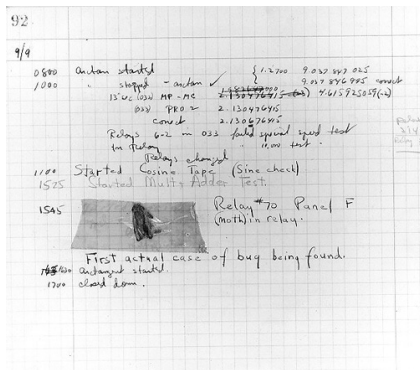 92
9/9
0800 antan started { 1.2700 9.037 847 025
1000 " stopped - antan ✓ 9.037 846 995 correct
13" UC (032) MP - MC 2.130476415 (-3) 4.615925059(-2)
033 PRO 2 2.130476415
correct 2.130676415
Relays 6-2 in 033 failed special speed test
in Relay " 11,000 test.
Relays changed
1100 Started Cosine Tape (Sine check)
1525 Started Mult+Adder Test.
1545 Relay #70 Panel F
(moth) in relay.
First actual case of bug being found.
1630 antangent started.
1700 closed down.